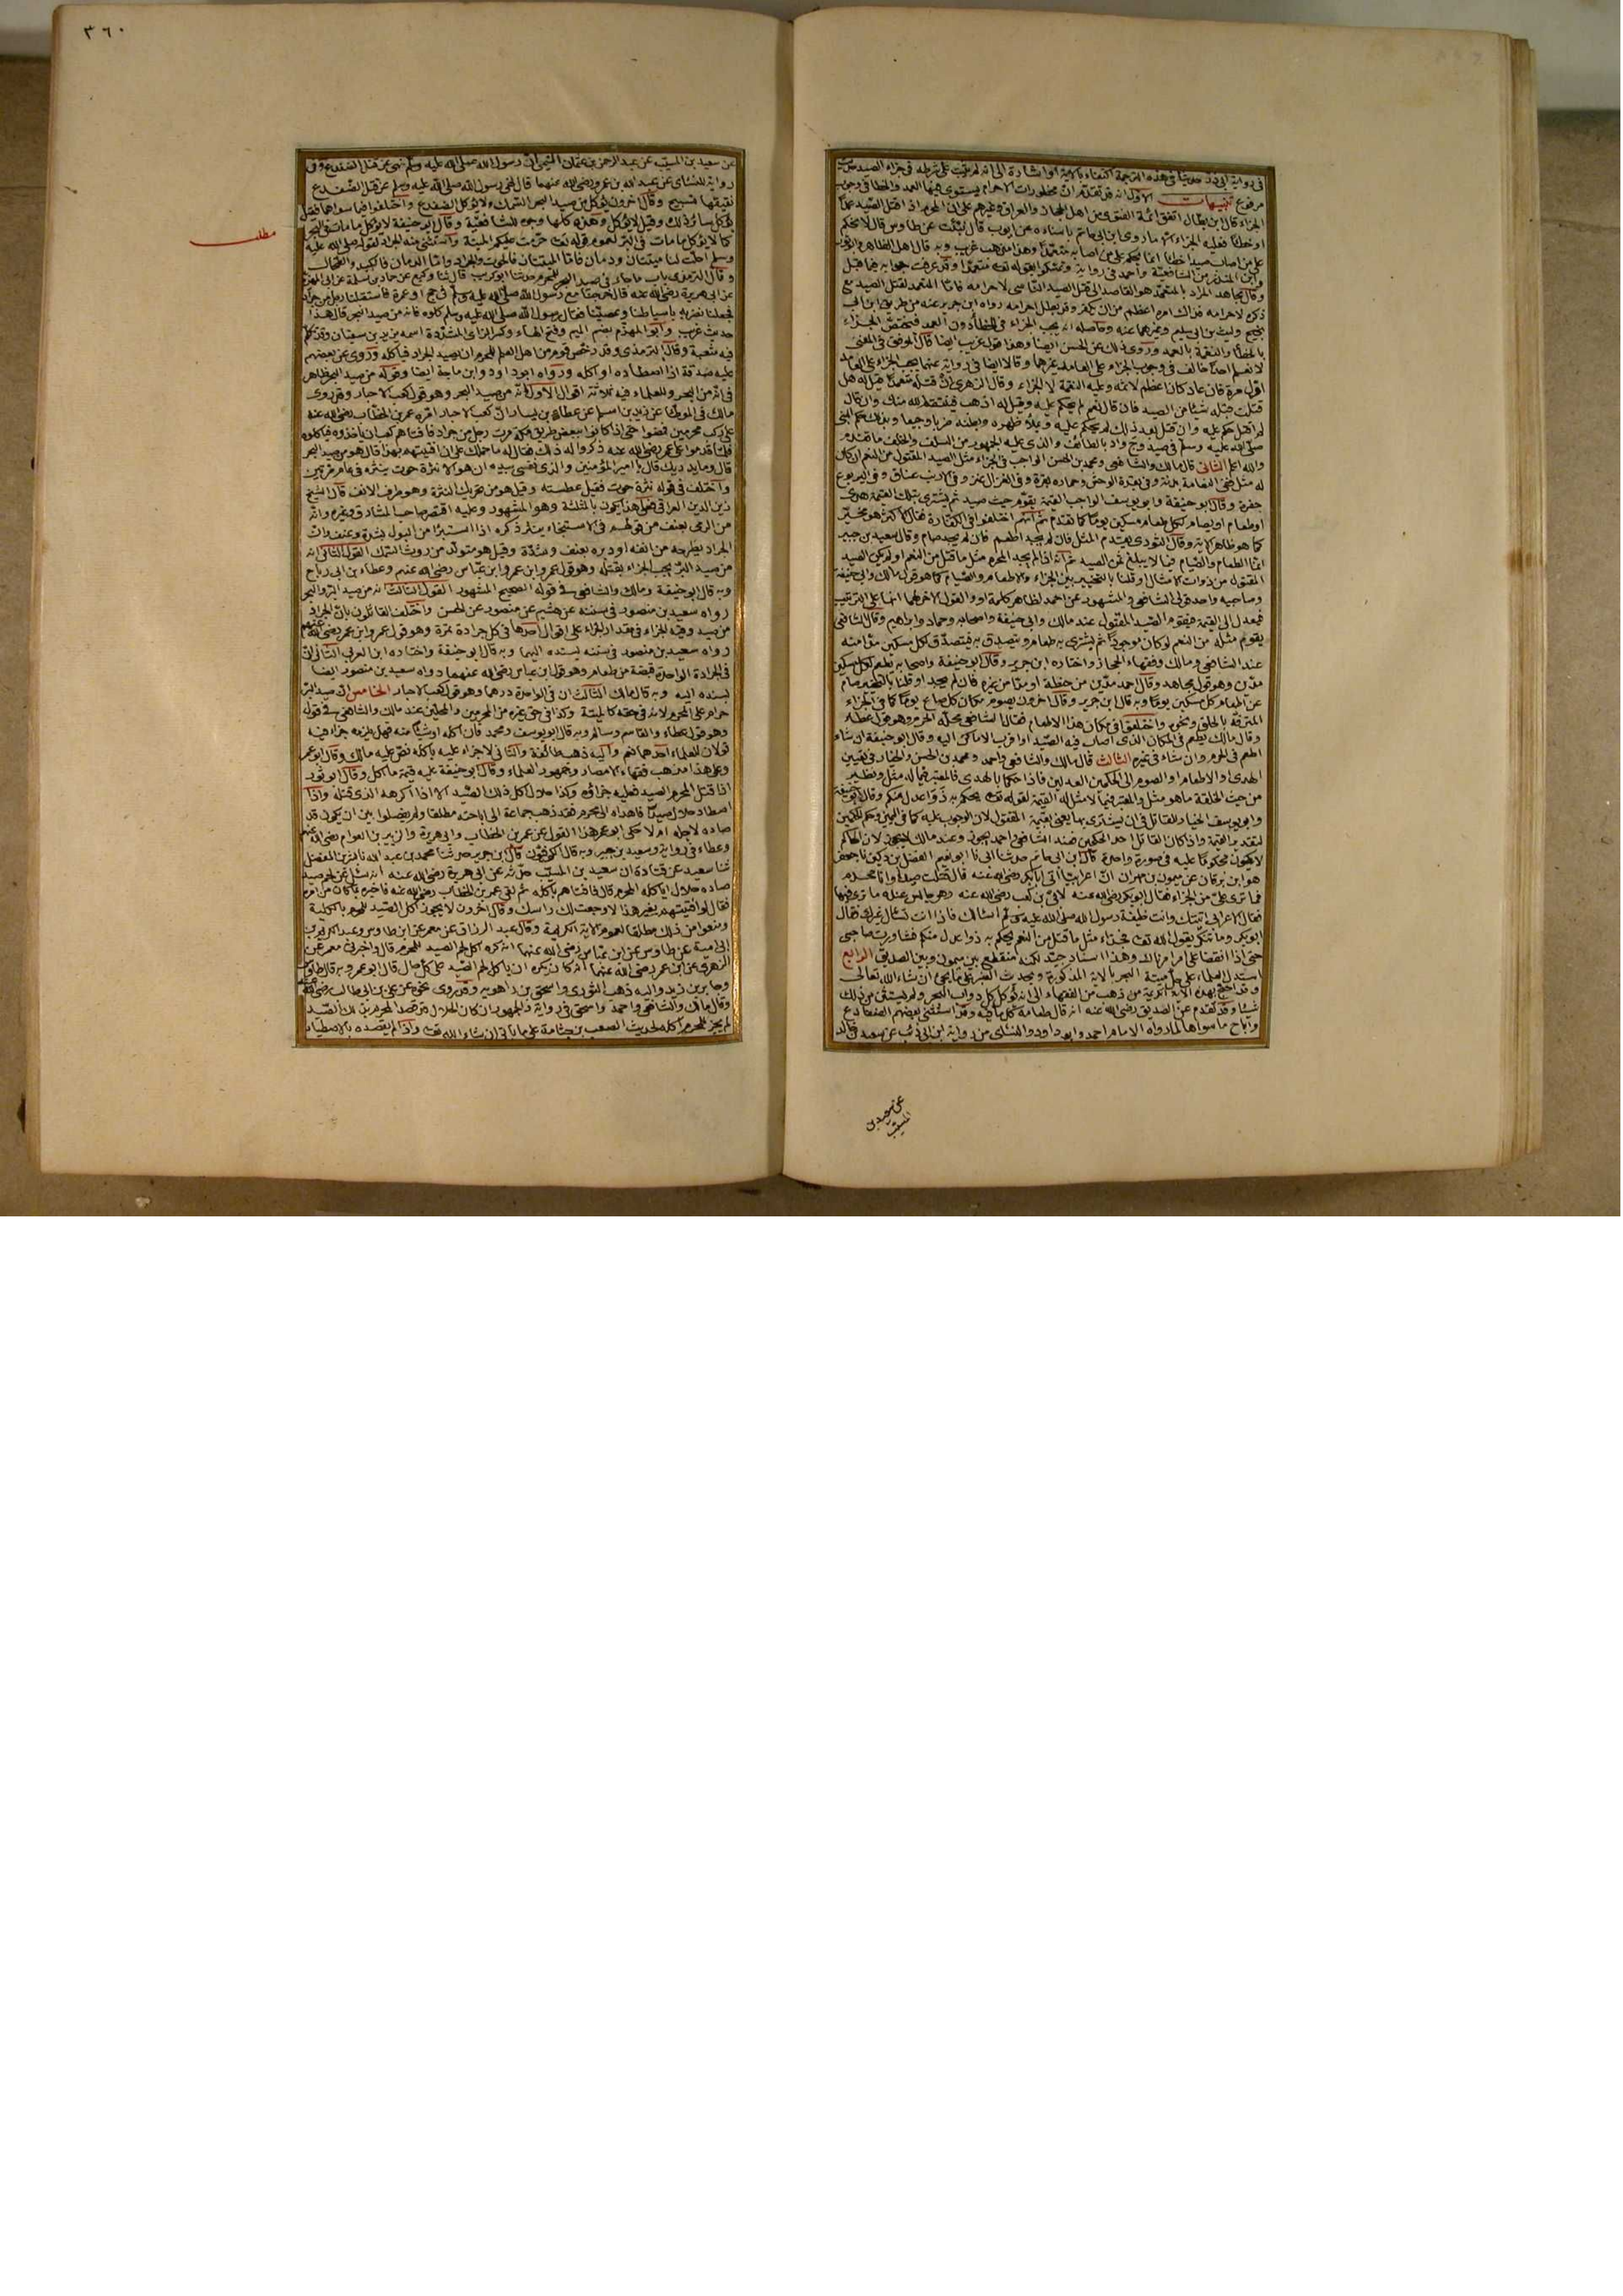 في رواية ابي ذر حديثا في هذه الترجمة اكتفاء بالآية او اشارة الى انه لم يثبت على شرطه في جزاء الصيد حديث
مرفوع تنبيهات الاول انه قد تقدم ان محظورات الاحرام يستوي فيها العمد والخطأ في وجوب
الجزاء قال ابن بطال اتفق ائمة الفتوى من اهل الحجاز والعراق وغيرهم على ان المحرم اذا قتل الصيد عمدا
او خطأ فعليه الجزاء ما روى ابن ابي حاتم باسناده عن ايوب قال نبئت عن طاوس قال لا يحكم
على من اصاب صيدا خطأ انما يحكم على من اصابه متعمدا وهذا مذهب غريب وبه قال اهل الظاهر وابو ثور
وابن المنذر من الشافعية واحمد في رواية وتمسكوا بقوله تعالى متعمدا وقد عرفت جوابه فيما قبل
وقال مجاهد المراد بالمتعمد هو القاصد الى قتل الصيد الناسي لاحرامه فاما المتعمد لقتل الصيد مع
ذكره لاحرامه فذاك امره اعظم من ان يكفر وقد بطل احرامه رواه ابن جرير عنه من طريق ابن ابي
نجيح وليث بن ابي سليم وغيرهما عنه وحاصله انه يجب الجزاء في الخطأ دون العمد فيختص الجزاء
بالخطأ والنقمة بالعمد وروى ذلك عن الحسن ايضا وهذا قول غريب ايضا قال الموفق في المغني
لا نعلم احدا خالف في وجوب الجزاء على العامد غيرهما وقالا ايضا في رواية عنهما يجب الجزاء على العامد
اول مرة فان عاد كان اعظم لاثمه وعليه النقمة لا الجزاء وقال الزهري ان قتله متعمدا قيل له هل
قتلت قبله شيئا من الصيد فان قال نعم لم يحكم عليه وقيل له اذهب فينتقم الله منك وان قال
لم اقتل حكم عليه وان قتل بعد ذلك لم يحكم عليه ويملأ ظهره وبطنه ضربا وجيعا وبذلك حكم النبي
صلى الله عليه وسلم في صيد وج واد بالطائف والذي عليه الجمهور من السلف والخلف ما تقدم
والله اعلم الثاني قال مالك والشافعي ومحمد بن الحسن الواجب في الجزاء مثل الصيد المقتول من النعم ان كان
له مثل ففي النعامة بدنة وفي بقرة الوحش وحماره بقرة وفي الغزال عنز وفي الارنب عناق وفي اليربوع
جفرة وقال ابو حنيفة وابو يوسف الواجب القيمة يقوم حيث صيد ثم يشتري بتلك القيمة هدي
او طعام او يصام لكل طعام مسكين يوما كما تقدم ثم انهم اختلفوا في الكفارة فقال الاكثر هو مخير
كما هو ظاهر الآية وقال الثوري يقدم المثل فان لم يجد اطعم فان لم يجد صام وقال سعيد بن جبير
انما الطعام والصيام فيما لا يبلغ ثمن الصيد ثم انه اذا لم يجد المحرم مثل ما قتل من النعم او لم يكن الصيد
المقتول من ذوات الامثال او قلنا بالتخيير بين الجزاء والاطعام والصيام كما هو قول مالك وابي حنيفة
وصاحبيه واحد قولي الشافعي والمشهور عن احمد لظاهر كلمة او والقول الآخر لهما انها على الترتيب
فيعدل الى القيمة فيقوم الصيد المقتول عند مالك وابي حنيفة واصحابه وحماد وابراهيم وقال الشافعي
يقوم مثله من النعم لو كان موجودا ثم يشتري به طعام ويتصدق به فيتصدق لكل مسكين مدا منه
عند الشافعي ومالك وفقهاء الحجاز واختاره ابن جرير وقال ابو حنيفة واصحابه يطعم لكل مسكين
مدين وهو قول مجاهد وقال احمد مد من حنطة او مدان من غيره فان لم يجد او قلنا بالتخيير صام
عن اطعام كل مسكين يوما وبه قال ابن جرير وقال آخرون يصوم مكان كل صاع يوما كما في جزاء
المترفه بالحلق ونحوه واختلفوا في مكان هذا الاطعام فقال الشافعي محله الحرم وهو قول عطاء
وقال مالك يطعم في المكان الذي اصاب فيه الصيد او اقرب الاماكن اليه وقال ابو حنيفة ان شاء
اطعم في الحرم وان شاء في غيره الثالث قال مالك والشافعي واحمد ومحمد بن الحسن والخيار في تعيين
الهدي او الاطعام او الصوم الى الحكمين العدلين فاذا حكما بالهدي فالمعتبر فيما له مثل ونظير
من حيث الخلقة ما هو مثل والمعتبر فيما لا مثل له القيمة لقوله تعالى يحكم به ذوا عدل منكم وقال ابو حنيفة
وابو يوسف الخيار للقاتل في ان يشتري بها يعني بقيمة المقتول لان الوجوب عليه كما في اليمين وحكم الحكمين
لتقدير القيمة واذا كان القاتل احد الحكمين فعند الشافعي واحمد يجوز وعند مالك لا يجوز لان الحاكم
لا يكون محكوما عليه في صورة واحدة قال ابن ابي حاتم حدثنا ابي نا ابو نعيم الفضل بن دكين نا جعفر
هو ابن برقان عن ميمون بن مهران ان اعرابيا اتى ابا بكر رضي الله عنه قال قتلت صيدا وانا محرم
فما ترى علي من الجزاء فقال ابو بكر رضي الله عنه لابي بن كعب رضي الله عنه وهو جالس عنده ما ترى فيها
فقال الاعرابي اتيتك وانت خليفة رسول الله صلى الله عليه وسلم اسألك فاذا انت تسأل غيرك فقال
ابو بكر وما تنكر يقول الله تعالى فجزاء مثل ما قتل من النعم يحكم به ذوا عدل منكم فشاورت صاحبي
حتى اذا اتفقنا على امر امرناك به وهذا اسناد جيد لكنه منقطع بين ميمون وبين الصديق الرابع
استدل العلماء على حل ميتة البحر بالآية المذكورة وبحديث العنبر على ما يجيء ان شاء الله تعالى
وقد احتج بهذه الآية الكريمة من ذهب من الفقهاء الى انه تؤكل كل دواب البحر ولم يستثن من ذلك
شيئا وقد تقدم عن الصديق رضي الله عنه انه قال طعامه كل ما فيه وقد استثنى بعضهم الضفادع
واباح ما سواها لما رواه الامام احمد وابو داود والنسائي من رواية ابن ابي ذئب عن سعيد بن خالد
عن سعيد بن
المسيب
٣٦٠
عن سعيد بن المسيب عن عبد الرحمن بن عثمان التيمي ان رسول الله صلى الله عليه وسلم نهى عن قتل الضفدع وفي
رواية للنسائي عن عبد الله بن عمرو رضي الله عنهما قال نهى رسول الله صلى الله عليه وسلم عن قتل الضفدع
نقيقها تسبيح وقال آخرون يؤكل من صيد البحر السمك ولا يؤكل الضفدع واختلفوا فيما سواهما فقيل
يؤكل سائر ذلك وقيل لا يؤكل وهذه كلها وجوه للشافعية وقال ابو حنيفة لا يؤكل ما مات في البحر
مطلب
كما لا يؤكل ما مات في البر لعموم قوله تعالى حرمت عليكم الميتة واستثنى منه الجراد لقوله صلى الله عليه
وسلم احلت لنا ميتتان ودمان فاما الميتتان فالحوت والجراد واما الدمان فالكبد والطحال
وقال الترمذي باب ما جاء في صيد البحر للمحرم حدثنا ابو كريب قال ثنا وكيع عن حماد بن سلمة عن ابي المهزم
عن ابي هريرة رضي الله عنه قال خرجنا مع رسول الله صلى الله عليه وسلم في حج او عمرة فاستقبلنا رجل من جراد
فجعلنا نضربه باسياطنا وعصينا فقال رسول الله صلى الله عليه وسلم كلوه فانه من صيد البحر قال هذا
حديث غريب وابو المهزم بضم الميم وفتح الهاء وكسر الزاي المشددة اسمه يزيد بن سفيان وقد تكلم
فيه شعبة وقال الترمذي وقد رخص قوم من اهل العلم للمحرم ان يصيد الجراد فيأكله وروى عن بعضهم
عليه صدقة اذا اصطاده او اكله ورواه ابو داود وابن ماجة ايضا وقوله من صيد البحر ظاهر
في انه من البحر وللعلماء فيه ثلاثة اقوال الاول انه من صيد البحر وهو قول كعب الاحبار وقد روى
مالك في الموطأ عن زيد بن اسلم عن عطاء بن يسار ان كعب الاحبار امره عمر بن الخطاب رضي الله عنه
على ركب محرمين فمضوا حتى اذا كانوا ببعض طريق مكة مرت رجل من جراد فافتاهم كعب ان يأخذوه فيأكلوه
فلما قدموا على عمر رضي الله عنه ذكروا له ذلك فقال له ما حملك على ان افتيتهم بهذا قال هو من صيد البحر
قال وما يدريك قال يا امير المؤمنين والذي نفسي بيده ان هو الا نثرة حوت ينثره في كل عام مرتين
واختلف في قوله نثرة حوت فقيل عطسته وقيل هو من تحريك النثرة وهو طرف الانف قال الشيخ
زين الدين العراقي فعلى هذا يكون بالمثلثة وهو المشهور وعليه اقتصر صاحب المشارق وغيره وانه
من الرمي بعنف من قولهم في الاستنجاء ينثر ذكره اذا استبرأ من البول بشدة وعنف لان
الجراد يطرحه من انفه او دبره بعنف وشدة وقيل هو متولد من روث السمك القول الثاني انه
من صيد البر يجب الجزاء بقتله وهو قول عمر وابن عمر وابن عباس رضي الله عنهم وعطاء بن ابي رباح
وبه قال ابو حنيفة ومالك والشافعي في قوله الصحيح المشهور القول الثالث انه من صيد البر والبحر
رواه سعيد بن منصور في سننه عن هشيم عن منصور عن الحسن واختلف القائلون بان الجراد
من صيد وفيه الجزاء في مقدار الجزاء على اقوال احدها في كل جرادة تمرة وهو قول عمر وابن عمر رضي الله عنهم
رواه سعيد بن منصور في سننه بسنده اليهما وبه قال ابو حنيفة واختاره ابن العربي الثاني ان
في الجرادة الواحدة قبضة من طعام وهو قول ابن عباس رضي الله عنهما رواه سعيد بن منصور ايضا
بسنده اليه وبه قال مالك الثالث ان في الواحدة درهما وهو قول كعب الاحبار الخامس ان صيد البر
حرام على المحرم لانه في حقه كالميتة وكذا في حق غيره من المحرمين والمحلين عند مالك والشافعي في قول
وهو قول عطاء والقاسم وسالم وبه قال ابو يوسف ومحمد فان اكله او شيئا منه فهل يلزمه جزاء فيه
قولان للعلماء احدهما نعم واليه ذهب طائفة والثاني لا جزاء عليه باكله نص عليه مالك وقال ابو عمر
وعلى هذا مذهب فقهاء الامصار وجمهور العلماء وقال ابو حنيفة عليه قيمة ما اكل وقال ابو ثور
اذا قتل المحرم الصيد فعليه جزاؤه وكذا حلال اكل ذلك الصيد الا اذا اكرهه الذي قتله واذا
اصطاد حلال صيدا فاهداه الى محرم فقد ذهب جماعة الى اباحته مطلقا ولم يفصلوا بين ان يكون قد
صاده لاجله ام لا حكى ابو عمر هذا القول عن عمر بن الخطاب وابي هريرة والزبير بن العوام رضي الله عنهم
وعطاء في رواية وسعيد بن جبير وبه قال الكوفيون قال ابن جرير حدثنا محمد بن عبد الله نا بشر بن المفضل
ثنا سعيد عن قتادة ان سعيد بن المسيب حدثه عن ابي هريرة رضي الله عنه انه سئل عن لحم صيد
صاده حلال ايأكله المحرم قال فافتاهم باكله ثم لقي عمر بن الخطاب رضي الله عنه فاخبره بما كان من امره
فقال لو افتيتهم بغير هذا لاوجعت لك رأسك وقال آخرون لا يجوز اكل الصيد للمحرم بالكلية
ومنعوا من ذلك مطلقا لعموم الآية الكريمة وقال عبد الرزاق عن معمر عن ابن طاوس وعبد الكريم بن
ابي امية عن طاوس عن ابن عباس رضي الله عنهما انه كره اكل لحم الصيد للمحرم قال واخبرني معمر عن
الزهري عن ابن عمر رضي الله عنهما انه كان يكره ان يأكل لحم الصيد على كل حال قال ابو عمر وبه قال طاوس
وجابر بن زيد واليه ذهب الثوري واسحق بن راهويه وقد روى نحوه عن علي بن ابي طالب رضي الله عنه
وقال مالك والشافعي واحمد واسحق في رواية والجمهور ان كان الحلال قد قصد المحرم بذلك الصيد
لم يجز للمحرم اكله لحديث الصعب بن جثامة على ما يأتي ان شاء الله تعالى واذا لم يقصده بالاصطياد